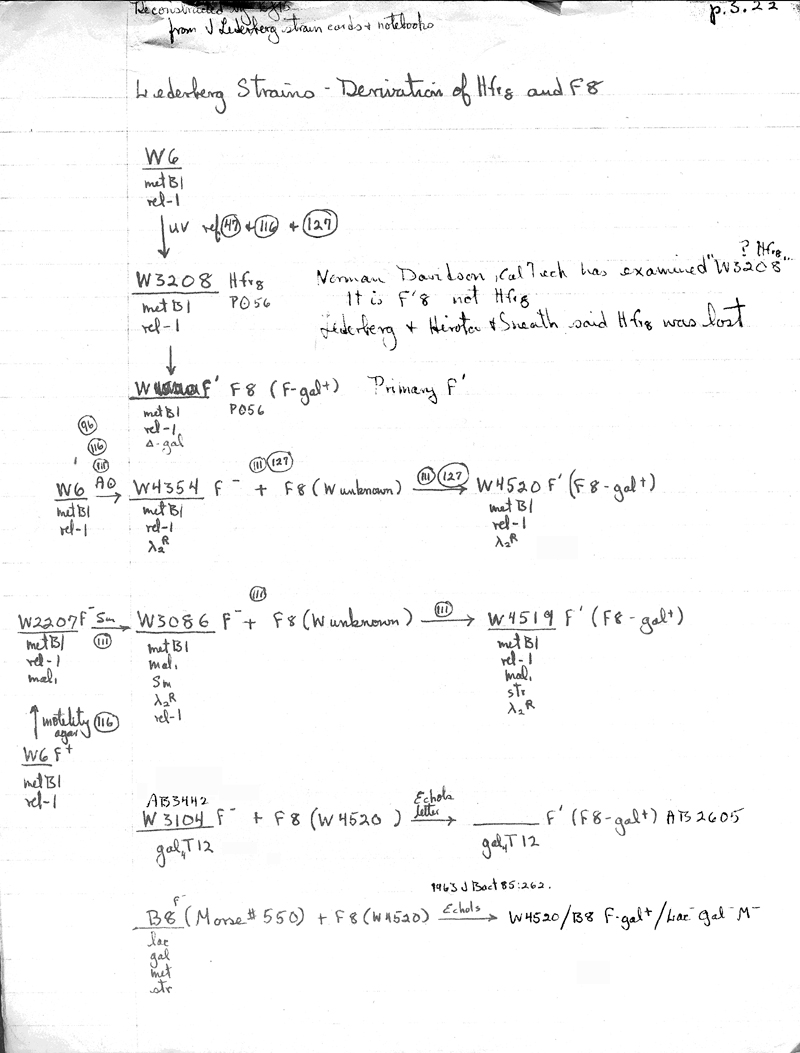 Reconstructed by BJB
from J Lederberg strain cards & notebooks
p.S.22
Lederberg Strains - Derivation of Hfr8 and F8
W6
met B1
rel-1
uv ref 47 & 116 & 127
W3208 Hfr8
PO56
met B1
rel-1
? Hfr8
Norman Davidson, CalTech has examined "W3208"
It is F'8 not Hfr8
Lederberg & Hirota & Sneath said Hfr8 was lost
W F' F8 (F-gal+) Primary F'
PO56
met B1
rel-1
Δ-gal
96
116
111
W6 AO W4354 F- + F8 (W unknown) W4520 F' (F8-gal+)
111 127
111 127
met B1
rel-1
met B1
rel-1
λ2R
met B1
rel-1
λ2R
W2207 F- Sm W3086 F- + F8 (W unknown) W4519 F' (F8-gal+)
111
111
111
met B1
rel-1
mal1
met B1
mal1
Sm
λ2R
rel-1
met B1
rel-1
mal1
str
λ2R
motility agar 116
W6 F+
met B1
rel-1
AB3442
W3104 F- + F8 (W4520) Echols letter F' (F8-gal+) AB2605
gal4 T12
gal4 T12
1963 J Bact 85:262.
F-
B8 (Morse # 550) + F8 (W4520) Echols W4520/B8 F-gal+/Lac- Gal- M-
lac
gal
met
str